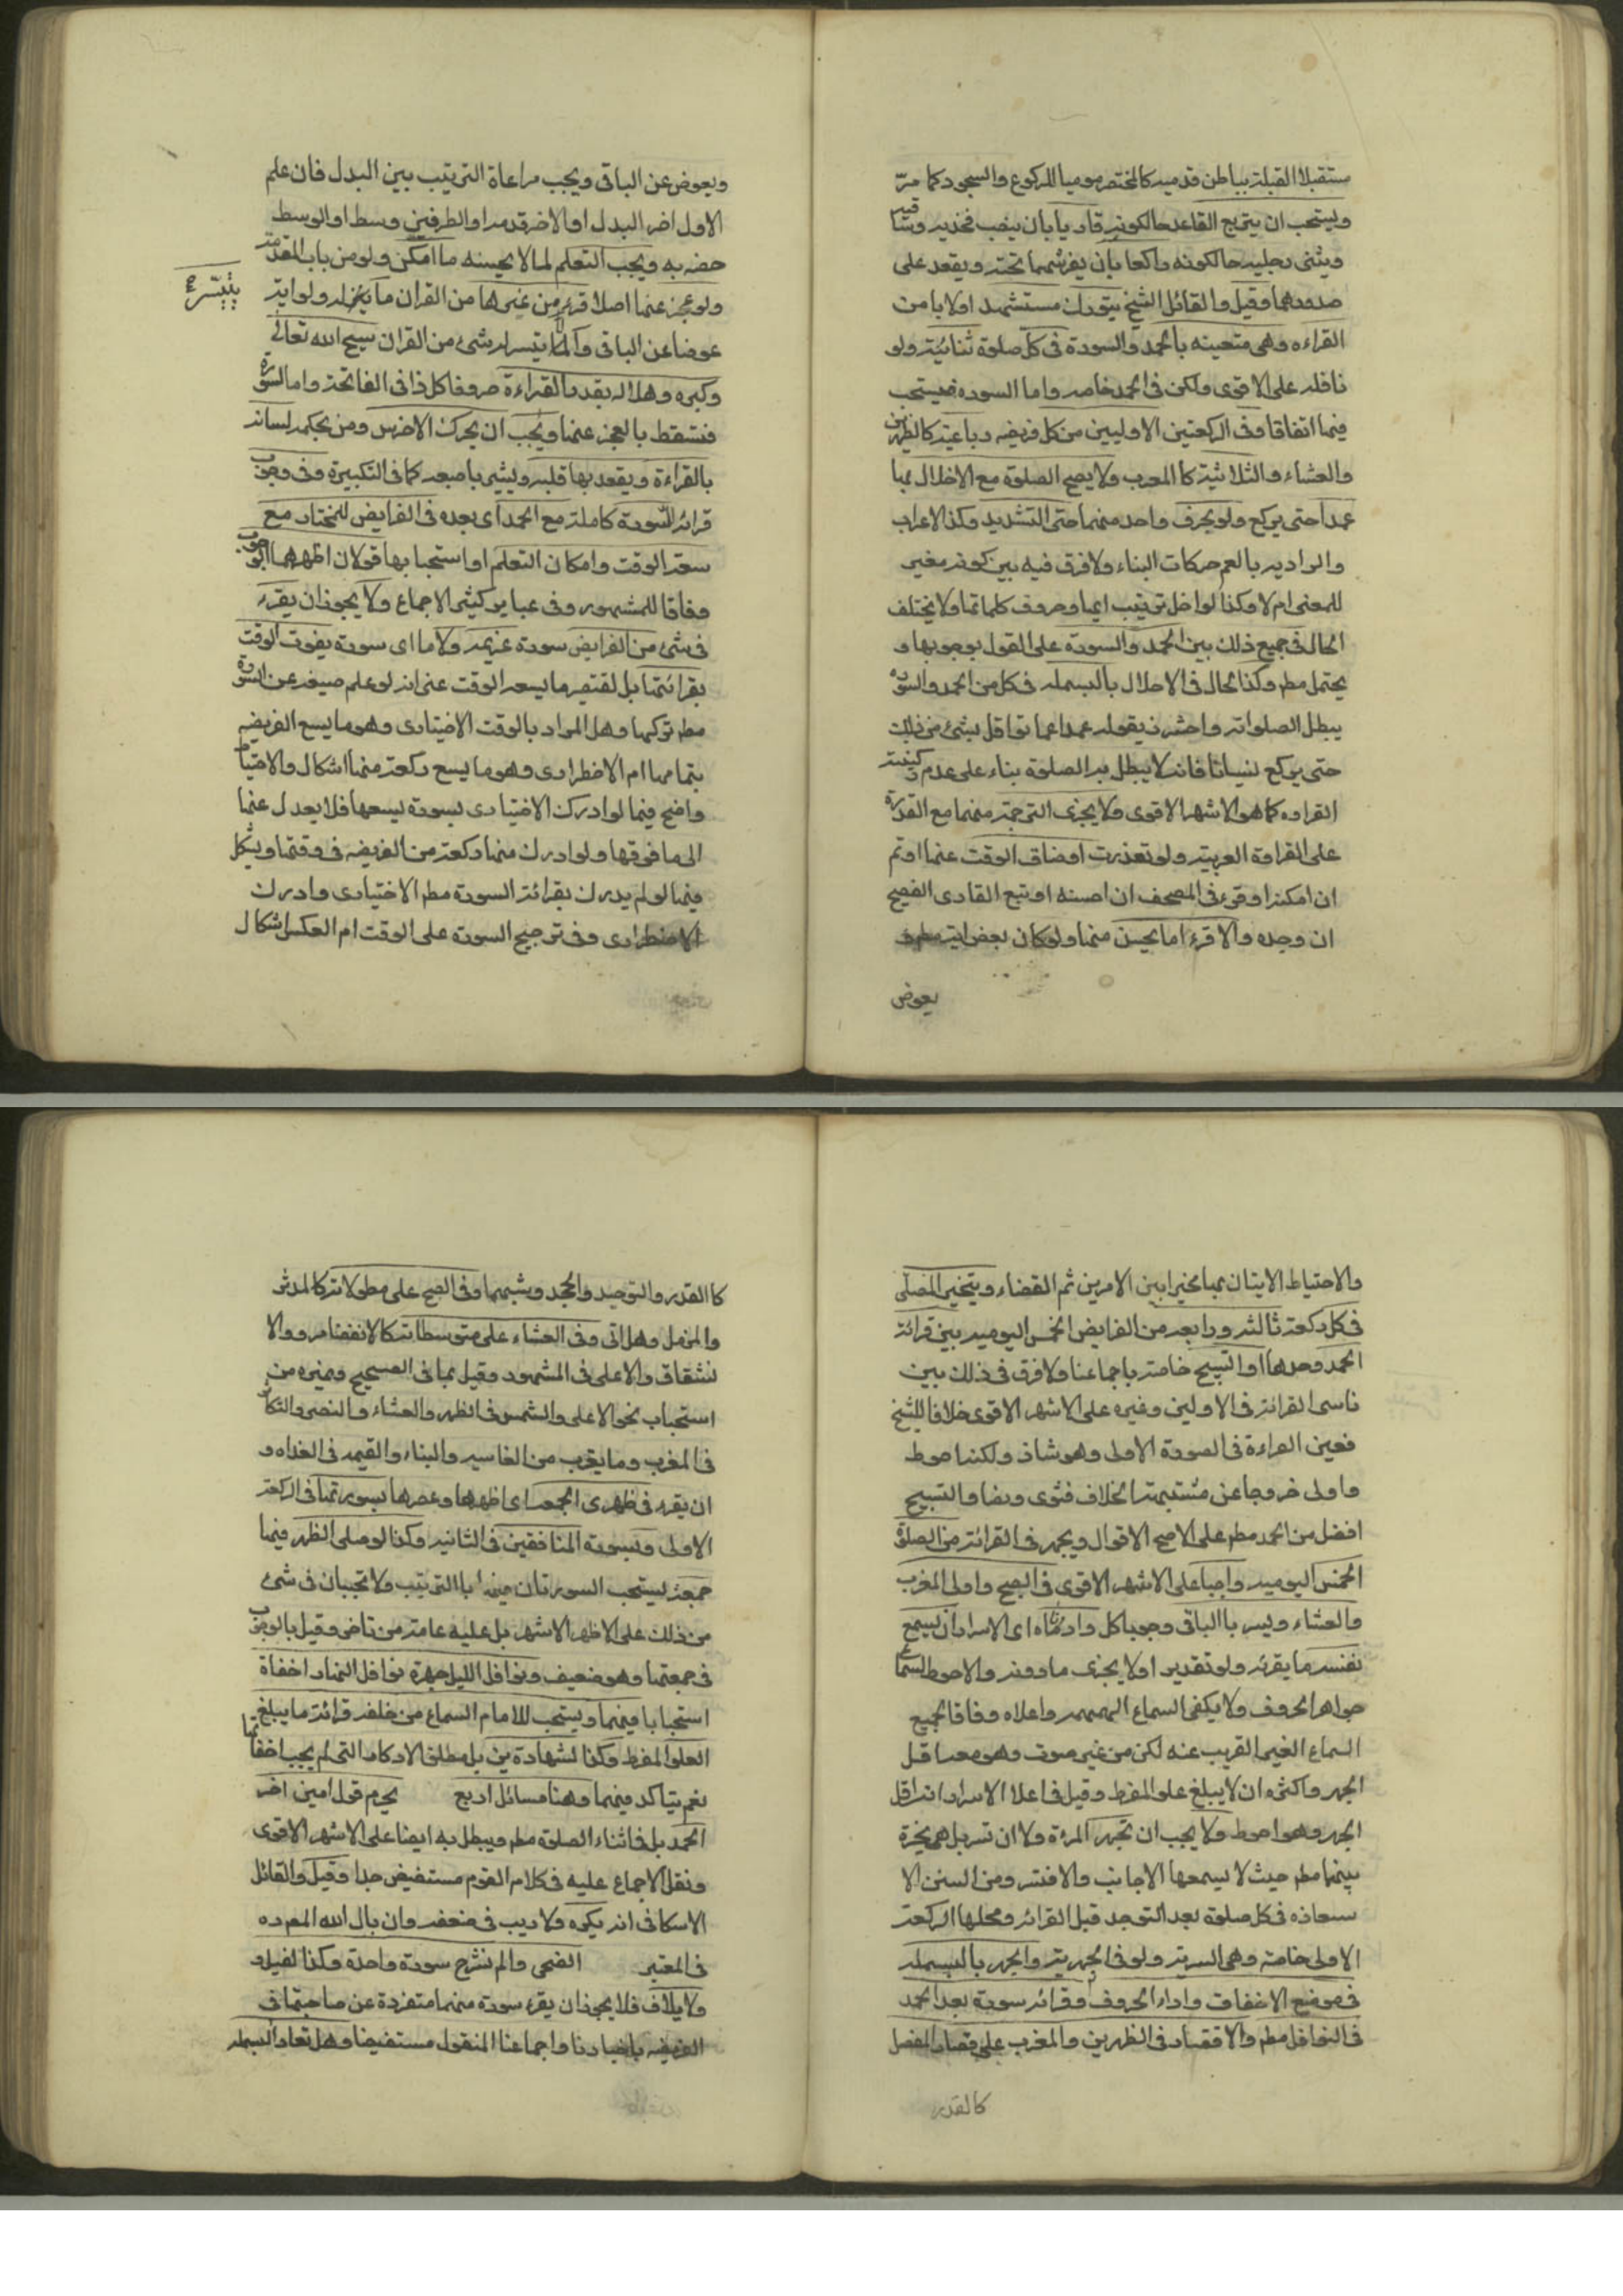 مستقبلا القبلة بباطن قدميه كالمحتضر موميا للركوع والسجود كما مرّ
ويستحب ان يتربع القاعد حالكونه قاريا بان ينصب فخذيه وساقيه
ويثنى رجليه حالكونه راكعا بان يفرشهما تحته ويقعد على
صدورهما وقيل والقائل الشيخ يتورك مستشهد اولا بامن
القراءه وهى متعينه بالحمد والسورة فى كل صلوة ثنائية ولو
نافله على الاقوى ولكن فى الحمد خاصه واما السوره فيستحب
فيها اتفاقا وفى الركعتين الاوليين من كل فريضه رباعية كالظهرين
والعشاء والثلاثية كا المغرب ولا يصح الصلوة مع الاخلال بها
عمدا حتى يركع ولو بحرف واحد منهما حتى التشديد وكذا الاعراب
والمراد به بالعم حركات البناء ولا فرق فيه بين كونه مغير
للمعنى ام لا وكذا لو اخل ترتيب ايها وحروف كلماتها ولا يختلف
الحال فى جميع ذلك بين الحمد والسورة على القول بوجوبها و
يحتمل مطم وكذا الحال فى الاخلال بالبسمله فى كل من الحمد والسوره
يبطل الصلوات واحترز بقوله عمدا عما لو اخل بشئ من ذلك
حتى يركع نسيانا فانه لا يبطل به الصلوة بناء على عدم ركنية
القراءه كما هو الاشهر الاقوى ولا يجزى الترجمة منهما مع القدرة
على القراءة العربية ولو تعذرت او ضاق الوقت عنها اوتم
ان امكنه او قرء فى المصحف ان احسنه او تبع القارى الفصيح
ان وجده والا قرء اما يحسن منها ولو كان بعض اية مطم و
يعوض
ويعوض عن الباقى ويجب مراعاة الترتيب بين البدل فان علم
الاول اخر البدل او الاخر قدمه او الطرفين وسط او الوسط
حفه به ويجب التعلم لما لا يحسنه ما امكن ولو من باب المقدمة
ولو عجز عنها اصلا قرء من غيرها من القران ما تيسر له ولو اية
يتيسر
عوضا عن الباقى والا تيسر له شئ من القران سبح الله تعالى
وكبره وهلله بقدر القراءة حروفا كل ذا فى الفاتحة واما السورة
فتسقط بالعجز عنها ويجب ان يحرك الاخرس ومن بحكمه لسانه
بالقراءة ويعقد بها قلبه ويشير باصبعه كما فى التكبيرة وفى وجوب
قرائة السورة كاملة مع الحمد اى بعده فى الفرايض للمختار مع
سعة الوقت وامكان التعلم او استحبابها قولان اظهرهما الوجوب
وفاقا للمشهور وفى عباير كثير الاجماع ولا يجوز ان يقرء
فى شئ من الفرايض سورة عزيمه ولا ما اى سورة يفوت الوقت
بقرائتها بل يقتصر ما يسعه الوقت عنى انه لو علم ضيقه عن السورة
مطم تركها وهل المراد بالوقت الاختيارى وهو ما يسع الفريضه
بتمامها ام الاضطرارى وهو ما يسع ركعة منها اشكال والاحتياط
واضح فيما لو ادرك الاختيارى بسورة يسعها فلا يعدل عنها
الى ما فوقها ولو ادرك منها ركعة من الفريضه فى وقتها ويشكل
فيما لو لم يدرك بقرائة السورة مطم الاختيارى وادرك
الاضطرارى وفى ترجيح السورة على الوقت ام العكس اشكال
والاحتياط الاتيان بها مخيرا بين الامرين ثم القضاء ويتخير المصلّى
فى كل ركعة ثالثه ورابعه من الفرايض الخمس اليوميه بين قرائة
الحمد وحدها او التسبيح خاصة باجماعنا ولا فرق فى ذلك بين
ناسى القرائة فى الاولين وغيره على الاشهر الاقوى خلافا للشيخ
فعين القراءة فى الصورة الاولى وهو شاذ ولكنه احوط
واولى خروجا عن شبهة الخلاف فتوى ونصا والتسبيح
افضل من الحمد مطم على الاصح الاقوال ويجهر فى القرائة من الصلوة
الخمس اليوميه واجبا على الاشهر الاقوى فى الصبح واولى المغرب
والعشاء ويسر باالباقى وجوبا كل وادناه اى الاسرار ان يسمع
نفسه ما يقرئه ولو تقديرا ولا يجزى ما دونه والاحوط اسماع
جواهر الحروف ولا يكفى سماع الهمهمه واعلاه وفاقا لجميع
السماع الغير القريب عنه لكن من غير صوت وهو معه اقل
الجهر واكثره ان لا يبلغ علو المفرط وقيل فاعلا الاسرار انه اقل
الجهر وهو احوط ولا يجب ان تجهر المرءة ولا ان تسر بل هى مخيرة
بينهما مطم حيث لا يسمعها الاجانب والا فتسر ومن السنن الا
ستعاذه فى كل صلوة بعد التوجه قبل القرائه ومحلها الركعة
الاولى خاصة وهى السرية ولو فى الجهرية والجهر بالبسمله
فى موضع الاخفات واداء الحروف وقرائه سورة بعد الحمد
فى النوافل مطم والاقتصار فى الظهرين والمغرب على قصار المفصل
كالقدر
كا القدر والتوحيد والجحد وشبهها وفى الصبح على مطولاته كالمدثر
والمزمل وهل اتى وفى العشاء على متوسطاته كالانفطار والا
نشقاق والاعلى فى المشهور وقيل بما فى الصحيح وغيره من
استحباب نحو الاعلى والشمس فى الظهر والعشاء والنصر والتكاثر
فى المغرب وما يقرب من الغاشيه والنباء والقيمه فى الغداه و
ان يقرء فى ظهرى الجمعه اى ظهرها وعصرها بسورتها فى الركعة
الاولى وبسورة المنافقين فى الثانيه وكذا لو صلى الظهر فيها
جمعة يستحب السورتان فيها باالترتيب ولا تجبان فى شئ
من ذلك على الاظهر الاشهر بل عليه عامة من تاخر وقيل بالوجوب
فى جمعتها وهو ضعيف ونوافل الليل جهرة نوافل النهار اخفاة
استحبابا فيهما ويستحب للامام السماع من خلفه قرائة ما يبلغ
العلو المفرط وكذا لشهادة بين بل مطلق الاذكار التى لم يجب اخفاتها
نعم يتاكد فيهما وهنا مسائل اربع يحرم قول امين اخر
الحمد بل فى اثناء الصلوة مطم ويبطل به ايضا على الاشهر الاقوى
ونقل الاجماع عليه فى كلام القوم مستفيض جدا وقيل والقائل
الاسكافى انه يكره ولا ريب فى ضعفه وان مال الله المصره
فى المعتبر الضحى والم نشرح سورة واحدة وكذا لفيل و
ولايلاف فلا يجوز ان يقرء سورة منهما متفردة عن صاحبتها فى
الفريضه باخبارنا واجماعنا المنقول مستفيضا وهل تعاد البسمله